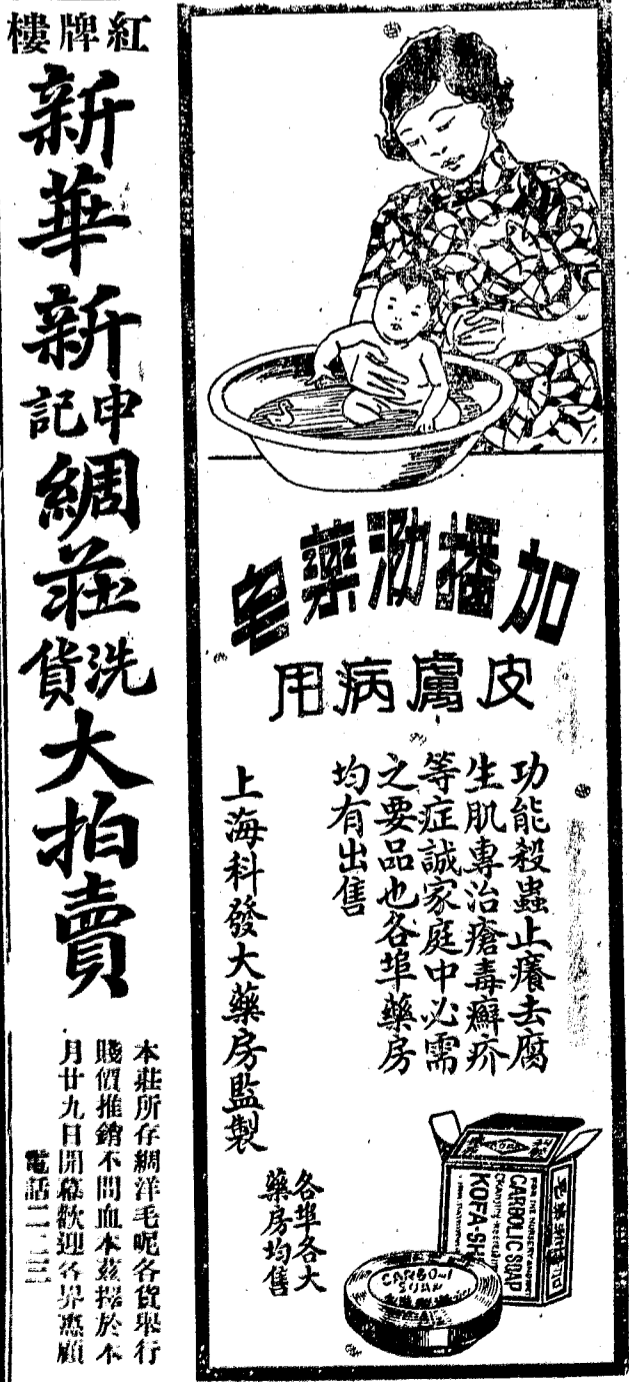 加播泐藥皂
皮膚病用
功能殺蟲止癢去腐
生肌專治瘡毒癬疥
等症誠家庭中必需
之要品也各埠藥房
均有出售
上海科發大藥房監製
各埠各大
藥房均售
CARBOLIC SOAP
KOFA-SH
CARBO
SOAP
紅牌樓
新華新
申記
綢莊
洗貨
大拍賣
本莊所存綢洋毛呢各貨舉行
賤價推銷不問血本茲擇於本
月廿九日開幕歡迎各界惠顧
電話二二三